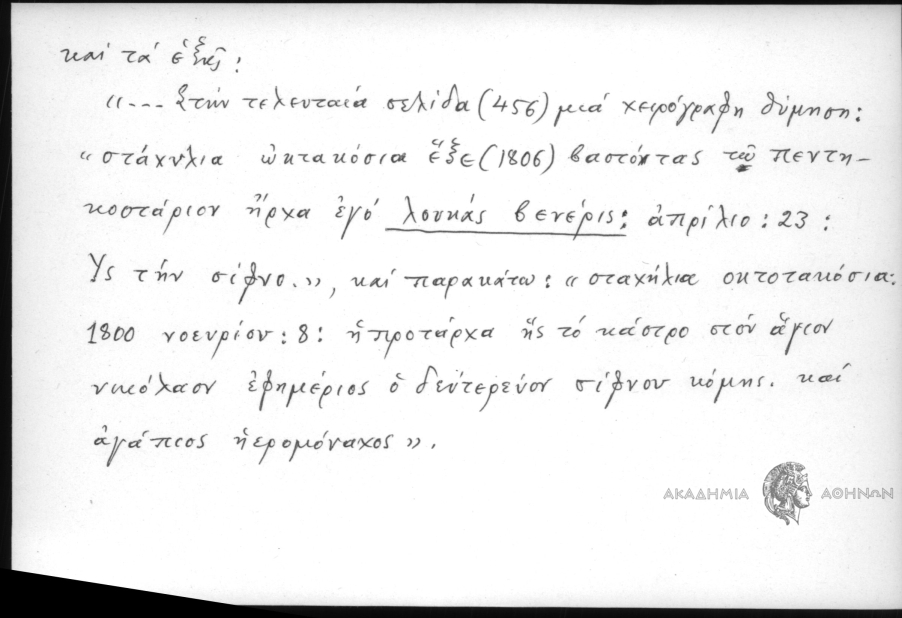 καί τά ἑξῆς:
"... Στήν τελευταία σελίδα (456) μιά χειρόγραφη θύμηση:
"στάχυλια ὠκτακόσια ἕξε (1806) βαστόντας τῶ πεντη-
κοστάριον ἦρχα ἐγό λουκάς βενέρις: ἀπρίλιο: 23:
Υς τήν σίφνο.", καί παρακάτω: "σταχήλια οκτοτακόσια:
1800 νοευρίον: 8: ἡπροτάρχα ἥς τό κάστρο στόν ἅγιον
νικόλαον ἐφημέριος ὁ δεύτερεύον σίφνου κόμης. καί
ἀγάπιος ἡερομόναχος".
ΑΚΑΔΗΜΙΑ ΑΘΗΝΩΝ